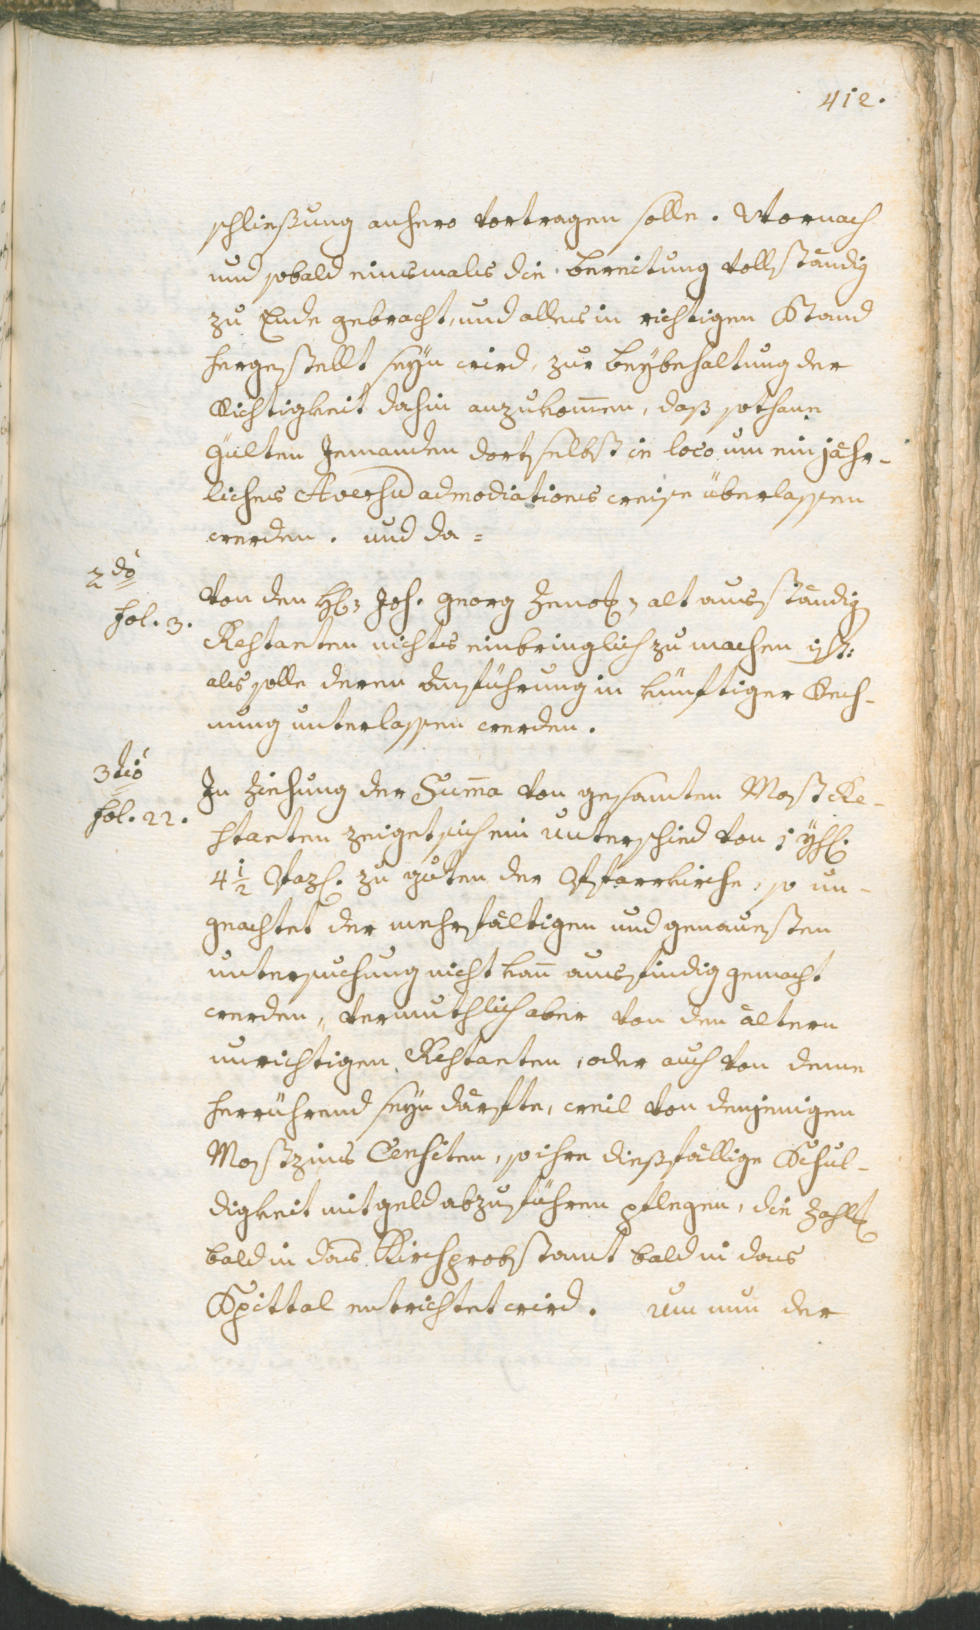 412.
schließung anhero vortragen solle. Wornach
und sobald einsmals die bereitung vollständig
zu Ende gebracht, und alles in richtigen Stand
hergestellt seyn wird, zur beybehaltung der
Richtigkeit dahin anzukom̅en, daß sothane
Gülten Jemanden dortselbst in loco um ein jähr-
liches Aversu admodiations weise überlassen
werden. und da =
2do
fol. 3.
von den Joh. Georg alt ausständig
Restanten nichts einbringlich zu machen ist:
als solle deren Ausführung in künftiger Rech-
nung unterlassen werden.
3tio
fol. 22.
In Ziehung der Sum̅a von gesamten Most Re-
stanten zeiget sich ein Unterschied von 1 Yhr.
4 1/2 Paz. zu guten der Pfarrkirche, so un-
geachtet der mehrfältigen und genauesten
untersuchung nicht kan̅ ausfindig gemacht
werden, vermuthlich aber von den ältern
unrichtigen Restanten, oder auch von deme
herrührend seyn därfte, weil von denjenigen
Mostzins Censiten, so ihre dießfällige Schul-
digkeit mit geld abzuführen pflegen, die Zahlg
bald in das Kirchprobstamt bald in das
Spittal entrichtet wird. Um nun der